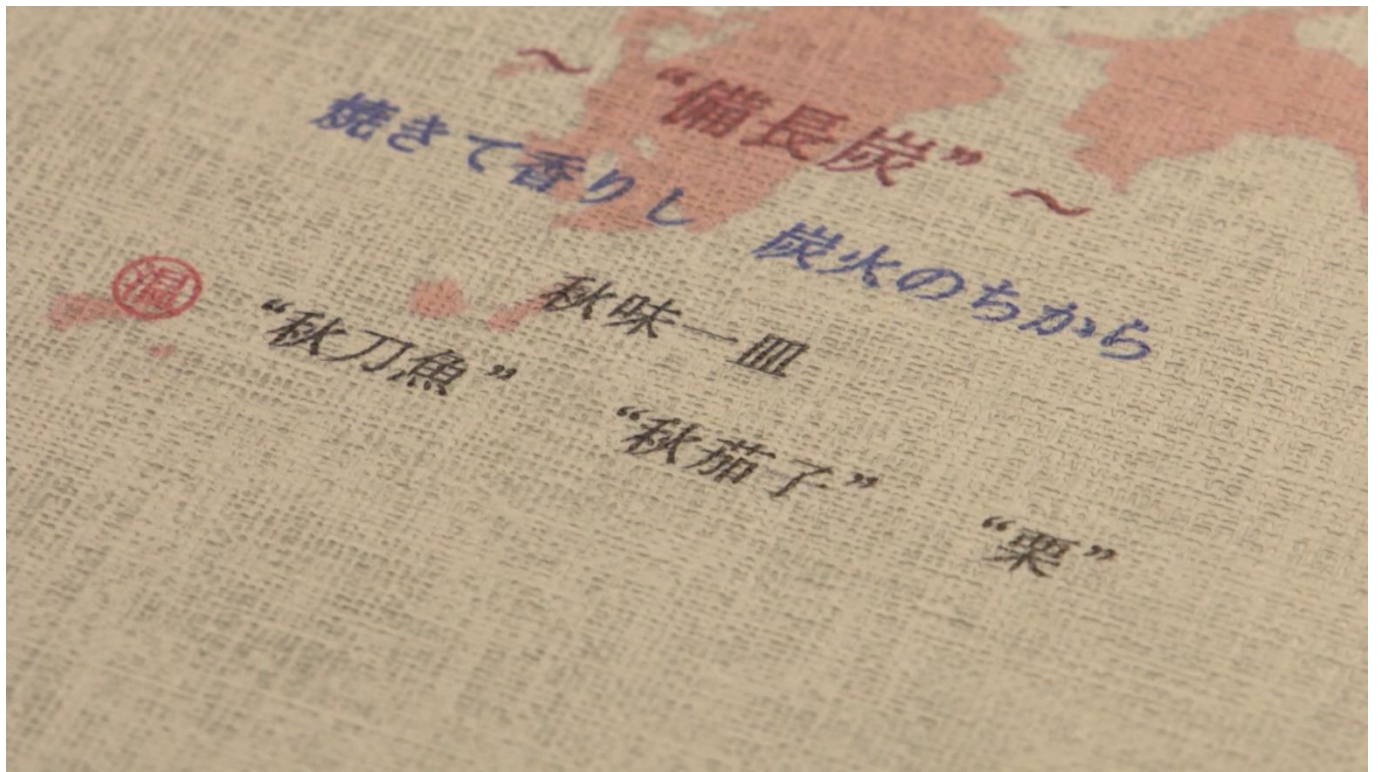 ～ “備長炭” ～
焼きて香りし 炭火のちから
秋味一皿
“秋刀魚” “秋茄子” “栗”